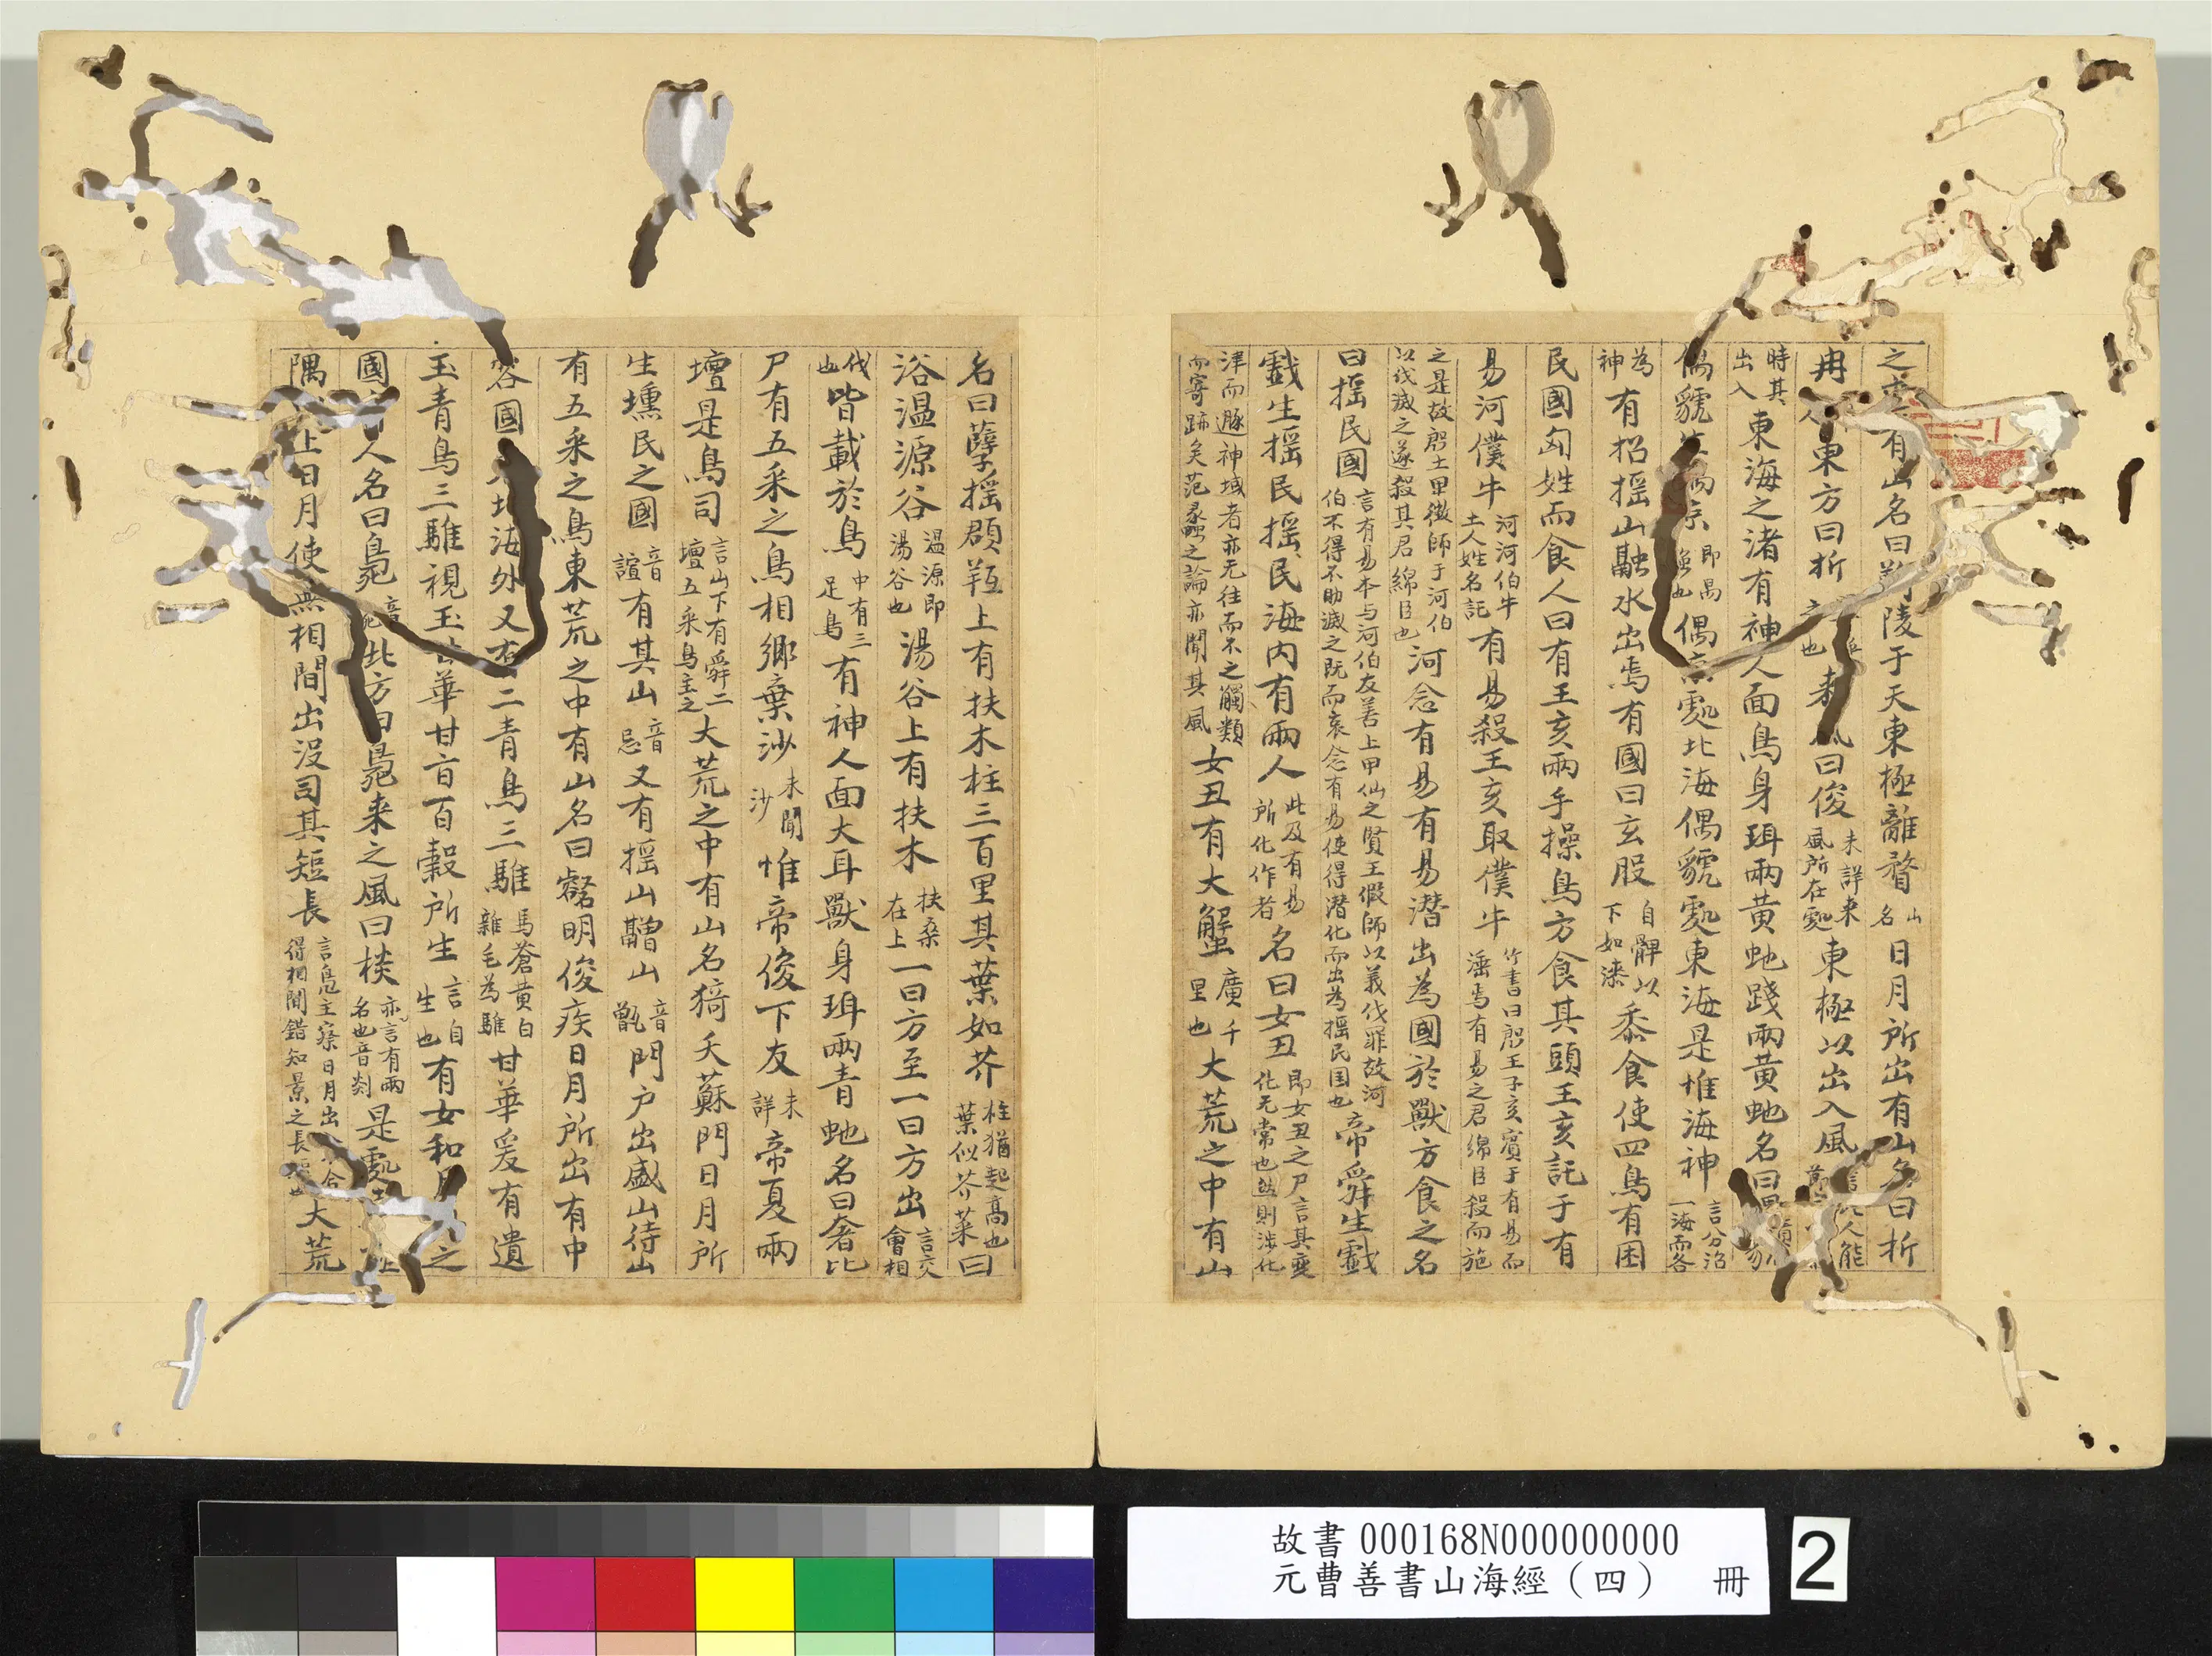 之東有山名曰鞠陵于天東極離瞀山名日月所出有山名曰折
丹東方曰折来風曰俊未詳来風所在䖏東極以出入風言此人能節
時其出入東海之渚有神人面鳥身珥兩黄虵踐兩黄虵名曰
偶䝞偶京即禺也偶京䖏北海偶䝞䖏東海是惟海神言分治一海而各
為神有招揺山融水出焉有國曰玄股自髀以下如漆黍食使四鳥有困
民國勾姓而食人曰有王亥兩手操鳥方食其頭王亥託于有
易河僕牛河河伯牛土人姓名託有易殺王亥取僕牛竹書曰殷王子亥賓于有易而滛焉有易之君綿臣殺而施
之是故殷土甲微師于河伯以伐滅之遂殺其君綿臣也河念有易有易潜出為國於獸方食之名
曰揺民國言有易本与河伯友善上甲仙之賢王假師以義伐罪故河伯不得不助滅之既而哀念有易使得潜化而出為揺民国也帝舜生戲
戲生揺民揺民海内有兩人此及有易所化作者名曰女丑即女丑之尸言其變化无常也然則涉化
津而遯神域者亦无往而不之觸類而寄跡矣范蠡之論亦聞其風女丑有大蟹廣千里也大荒之中有山
名曰孽揺頵羝上有扶木柱三百里其葉如芥柱猶起髙也葉似芥菜曰
浴温源谷温源即湯谷也湯谷上有扶木扶桑在上一日方至一日方出言交會相
伐也皆載於鳥中有三足鳥有神人面大耳獸身珥兩青虵名曰奢比
尸有五采之鳥相鄉棄沙未聞沙惟帝俊下友未詳帝夏兩
壇是鳥司言山下有舜二壇五采鳥主之大荒之中有山名猗天蘇門日月所
生壎民之國音諠有其山音忌又有揺山䰝山音甑門户出盛山待山
有五采之鳥東荒之中有山名曰壑明俊疾日月所出有中
容國東北海外又有二青鳥三騅馬蒼黄白雜毛為騅甘華爰有遺
玉青鳥三騅視玉甘華甘百百穀所生言自生也有女和月母之
國有人名曰鳧北方曰鳧来之風曰棪亦言有兩名也音剡是䖏
隅以上日月使無相間出没司其短長言鳧主察日月出不令得相間錯知景之長短也大荒
故書 000168N000000000
元曹善書山海經（四） 冊
2